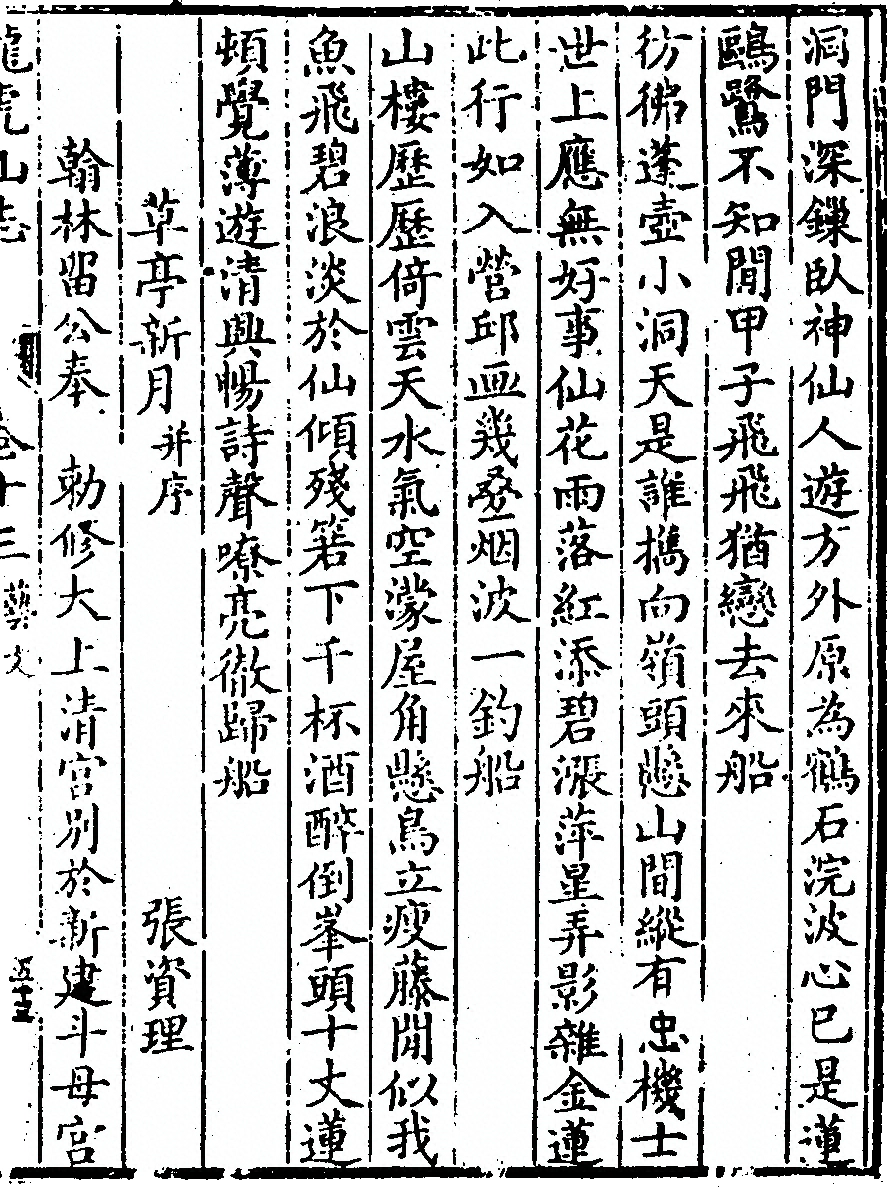 洞門深鏁臥神仙人遊方外原為鶴石浣波心巳是蓮
鷗鷺不知閒甲子飛飛猶戀去來船
彷彿蓬壺小洞天是誰擕向嶺頭懸山間縱有忠機士
世上應無好事仙花雨落紅添碧漲萍星弄影雜金蓮
此行如入營邱畫幾疊烟波一釣船
山樓歷歷倚雲天水氣空濛屋角懸鳥立瘦藤閒似我
魚飛碧浪淡於仙傾殘箬下千杯酒醉倒峯頭十丈蓮
頓覺薄遊清興暢詩聲嘹亮徹歸船
草亭新月并序 張資理
翰林畱公奉 勅修大上清宮別於新建斗母宮
龍虎山志 卷十三 藝文 五十三